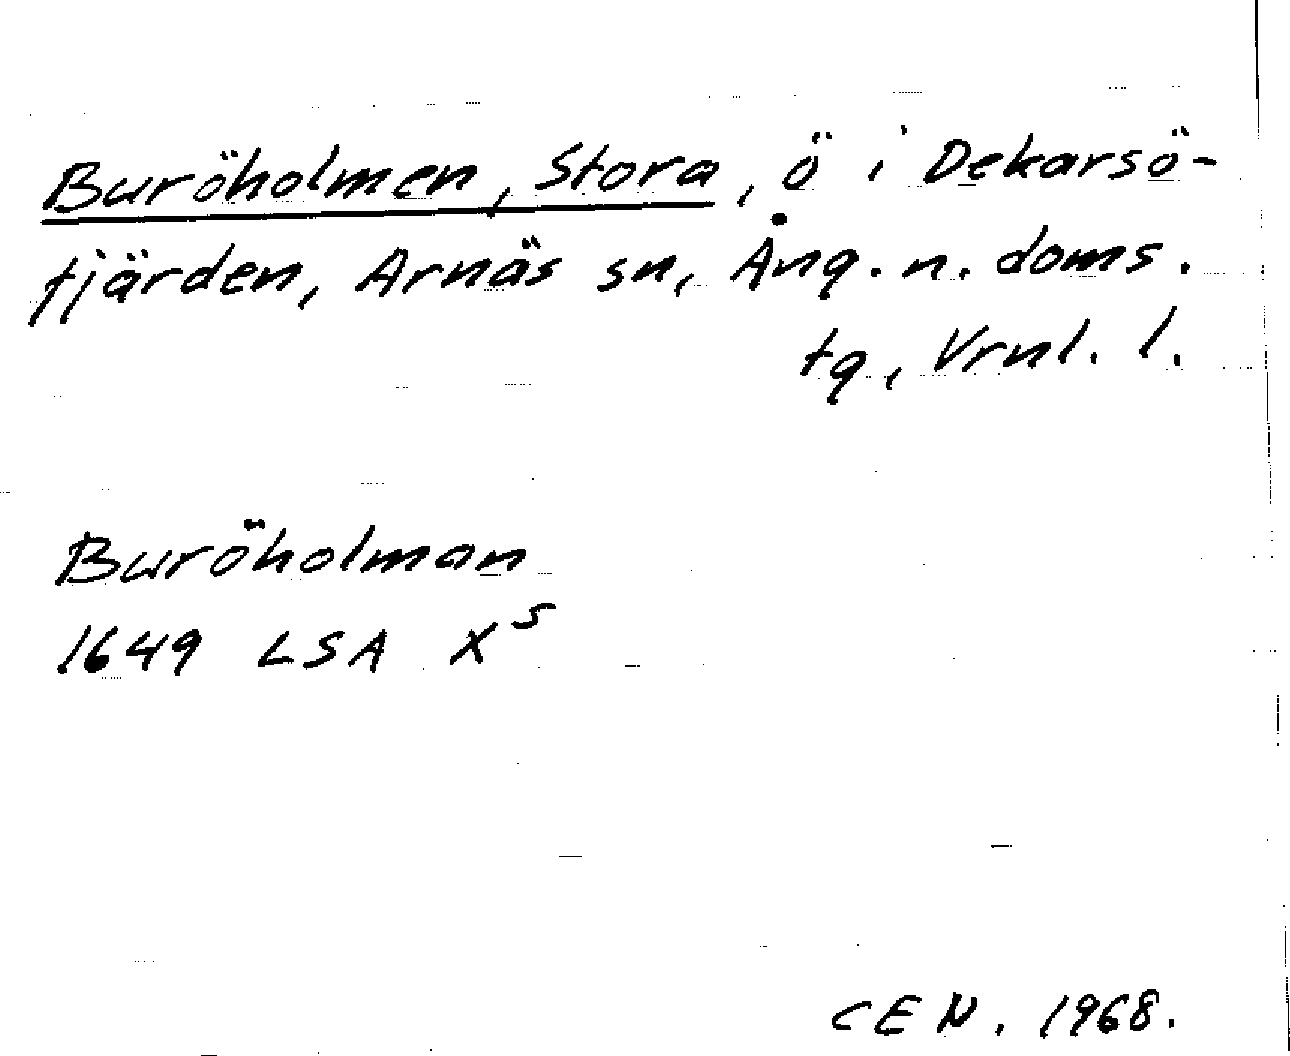 Buröholmen, Stora, ö i Dekarsö-
fjärden, Arnäs sn, Ång. n. doms.
tg, Vrnl. l.
Buröholman
1649 LSA X⁵
CEN. 1968.